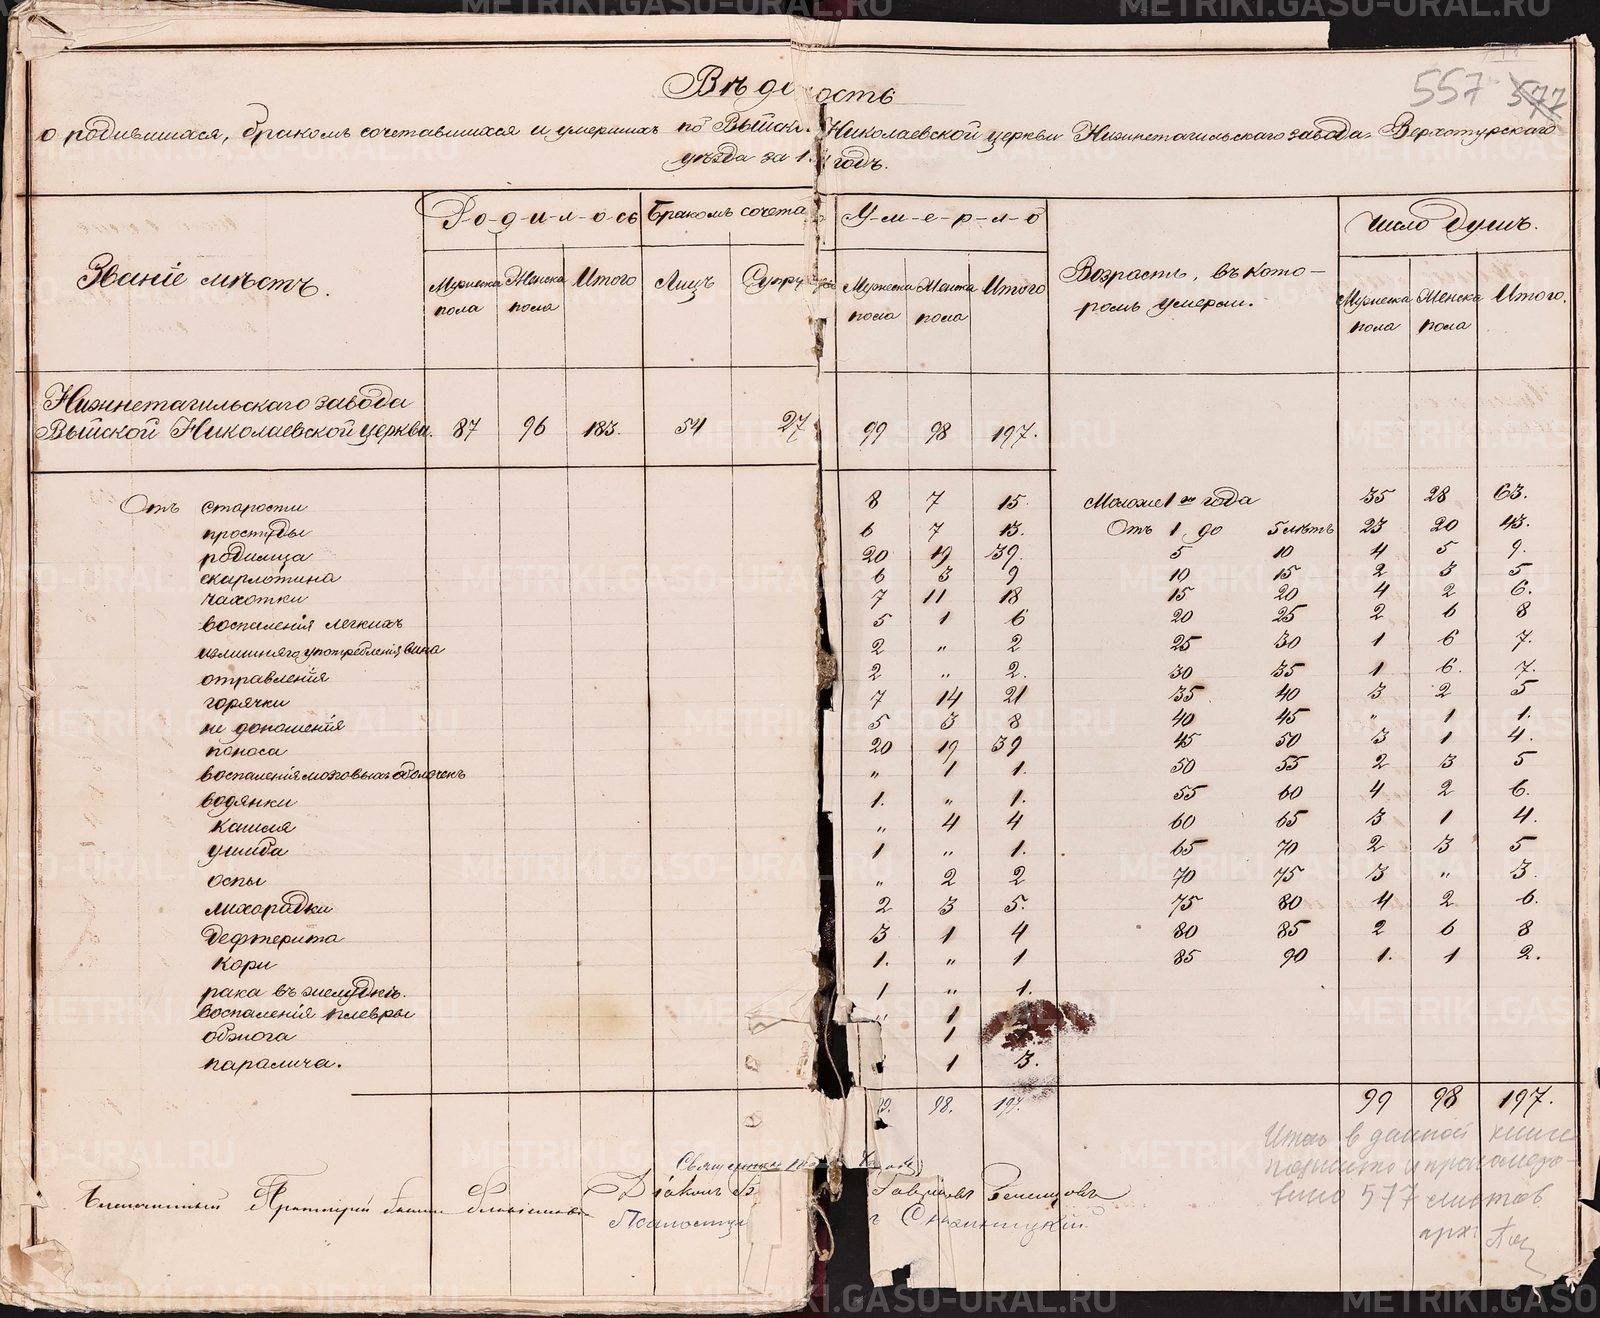 METRIKI.GASO-URAL.RU
557 577
Вѣдомость
о родившихся, бракомъ сочетавшихся и умершихъ по Выйской Николаевской церкви Нижнетагильскаго завода Верхотурскаго
уѣзда за 1 годъ.
Званіе мѣстъ. Родилось Бракомъ сочета У-м-е-р-л-о Возрастъ, въ кото- Число душъ.
Мужеска Женска Итого Лицъ Супру Мужеска Женска Итого ромъ умерли. Мужеска Женска Итого.
пола пола пола пола пола пола
Нижнетагильскаго завода
Выйской Николаевской церкви. 87 96 183. 54 27 99 98 197.
Отъ старости 8 7 15. Моложе 1 го года 35 28 63.
простуды 6 7 13. Отъ 1 до 5 лѣтъ 23 20 43.
родимца 20 19 39. 5 10 4 5 9.
скарлотина 6 3 9 10 15 2 3 5
чахотки 7 11 18 15 20 4 2 6.
воспаленія легкихъ 5 1 6 20 25 2 6 8
излишняго употребленія вина 2 „ 2 25 30 1 6 7.
отравленія 2 „ 2. 30 35 1 6. 7.
горячки 7 14 21 35 40 3 2 5
не доношенія 5 3 8 40 45 „ 1 1.
поноса 20 19 39 45 50 3 1 4.
воспаленія мозговыхъ оболочекъ „ 1 1. 50 55 2 3 5
водянки 1. „ 1. 55 60 4 2 6.
кашля „ 4 4 60 65 3 1 4.
ушиба 1 „ 1. 65 70 2 3 5
оспы „ 2 2 70 75 3 „ 3.
лихорадки 2 3 5. 75 80 4 2 6.
дефтерита 3 1 4 80 85 2 6 8
кори 1. „ 1 85 90 1. 1 2.
рака въ желудкѣ. 1 „ 1.
воспаленія плевры „ 1
обжога 1
паралича. 1 3.
9. 98. 197. 99 98 197.
Итого в данной книге
577 листов
Благочинный Протоіерей
Діаконъ Гавриловъ